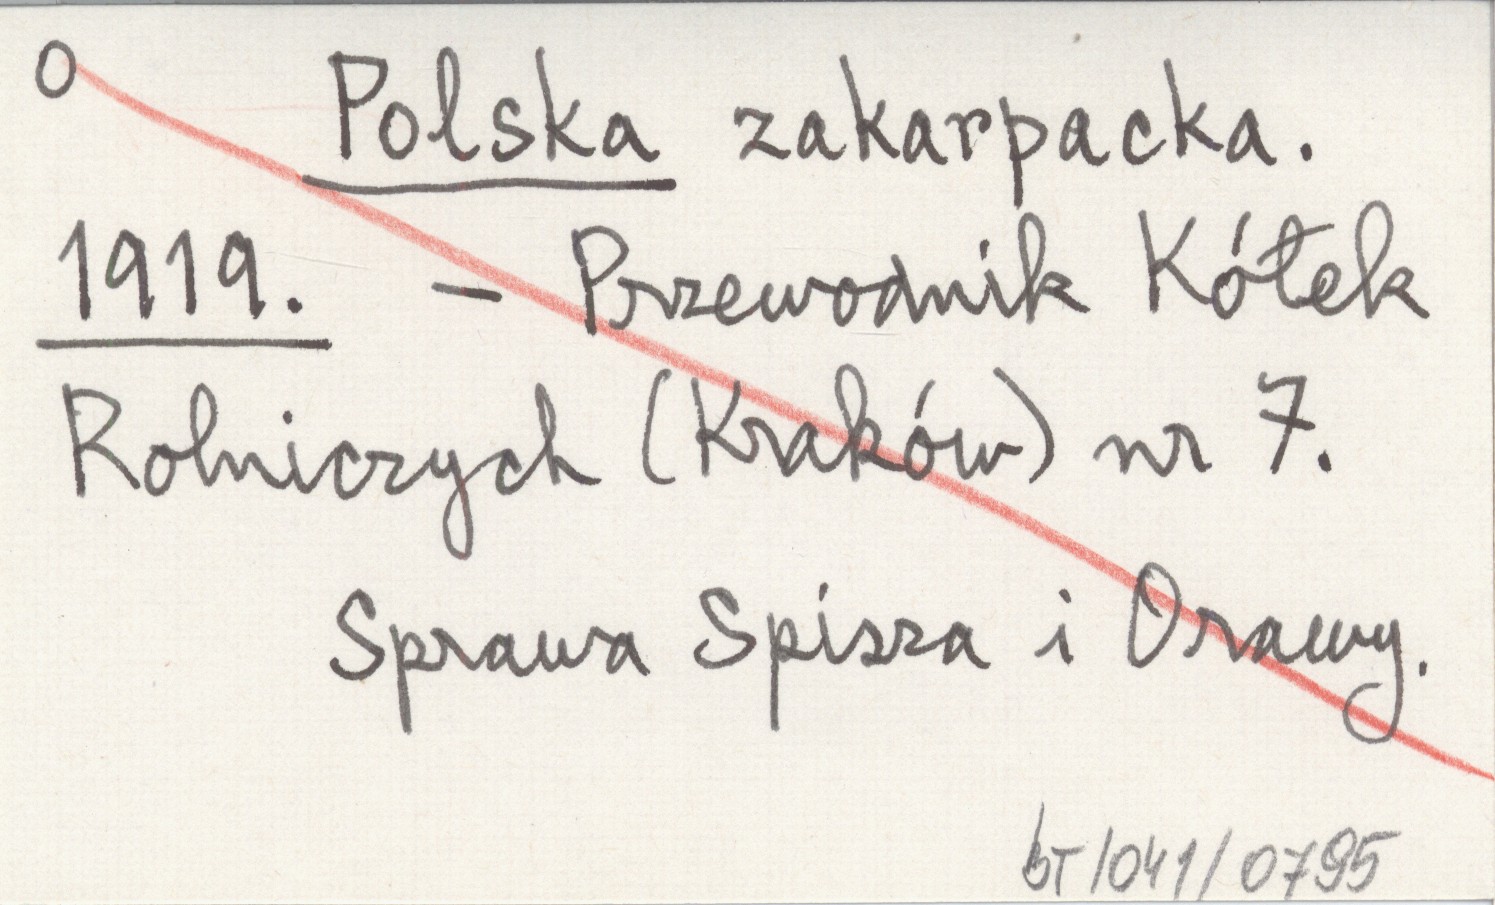 O Polska zakarpacka.
1919. – Przewodnik Kółek
Rolniczych (Kraków) nr 7.
Sprawa Spisza i Orawy.
bT/041/0795